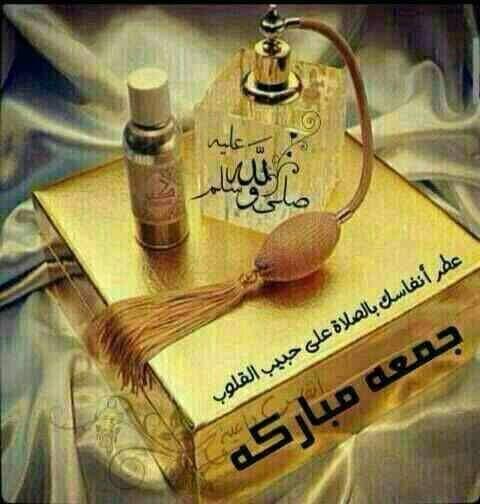 صلى الله عليه وسلم
عطر أنفاسك بالصلاة على حبيب القلوب
جمعه مباركه